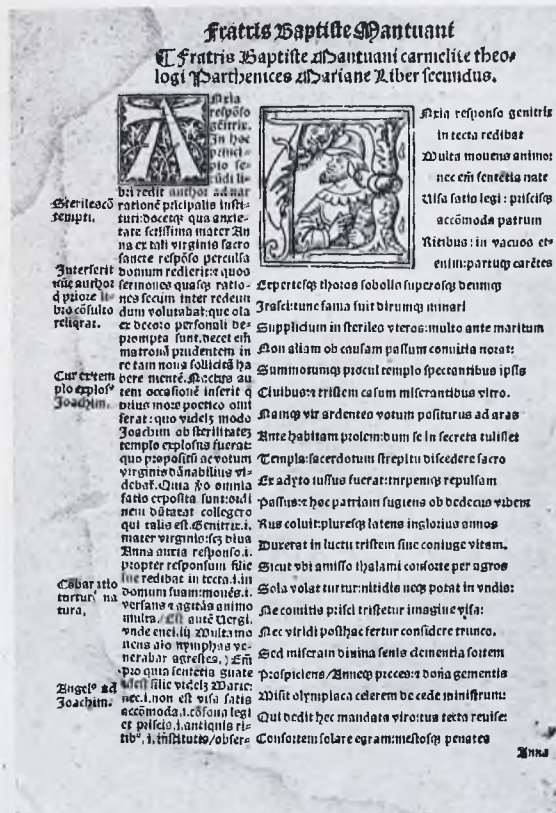 Fratris Baptiste Mantuani
¶ Fratris Baptiste Mantuani carmelite theo-
logi Parthenices Mariane Liber secundus.
Sterilescō
tempti.
Interserit
nūc author
q̄ priore li-
bro cōsulto
reliq̄rat.
Cur ex tem
plo explosꝰ
Joachim.
Cōparatio
turturꝭ na
tura.
Angelꝰ ad
Joachim.
ANxia
respōso
gēitrix.
In hoc
princi-
pio se-
cūdi li-
bri redit author ad nar
rationē pricipalis insti-
turi: docetqꝫ qua anxie-
tate scitissima mater An
na ex tali virginis sacro
sancte respōso perculsa
domum redierit: ⁊ quos
sermones quasqꝫ ratio-
nes secum inter redeun
dum volutabat: que oīa
ex decoro personali de-
prompta sunt. decet em̄
matronā prudentem in
re tam noua sollicitā ha
bere mentē. Nactus au
tem occasionē inserit q̄
prius more poetico omi
serat: quo videlꝫ modo
Joachim ob sterilitatem
templo explosus fuerat:
quo propositū ac votum
virginis dānabilius vi-
debat̄. Quia v̄o omnia
satis exposita sunt: ordi
nem dūtaxat collegero
qui talis est. Genitrix .i.
mater virginis: sꝫ diua
Anna anxia respōso .i.
propter responsum filie
sue redibat in tecta .i. in
domum suam: mouēs .i.
versans ⁊ agitās animo
multa. Est autē Uergi.
vnde enei. iij. Multa mo
uens aīo nymphas ve-
nerabar agrestes.) Em̄
pro quia sententia guate
idest filie videlꝫ Marie:
nec .i. non est visa satis
accōmoda .i. cōsona legi
et priscis .i. antiquis ri-
tibꝰ .i. institutis / obser-
ANxia responso genitrix
in tecta redibat
Multa mouens animo:
nec em̄ sentētia nate
Uisa satis legi: priscisqꝫ
accōmoda patrum
Ritibus: in vacuos et-
enim: partuqꝫ carētes
Expertesqꝫ thoros sobolis superosqꝫ deumqꝫ
Irasci: tunc fama fuit dirumqꝫ minari
Supplicium in steriles vteros: multo ante maritum
Non aliam ob causam passum conuitia norat:
Summotumqꝫ procul templo spectantibus ipsis
Ciuibus: ⁊ tristem casum miserantibus vltro.
Namqꝫ vir ardentes votum positurus ad aras
Ante habitam prolem: dum se in secreta tulisset
Templa: sacerdotum strepitu discedere sacro
Ex adyto iussus fuerat: turpemqꝫ repulsam
Passus: ⁊ hoc patriam fugiens ob dedecus vrbem
Rus coluit: pluresqꝫ latens inglorius annos
Duxerat in luctu tristem sine coniuge vitam.
Sicut vbi amisso thalami consorte per agros
Sola volat turtur: nitidis neqꝫ potat in vndis:
Ne comitis prisci tristetur imagine visa:
Nec viridi posthac fertur considere trunco.
Sed miseram diuina senis clementia sortem
Prospiciens / Anneqꝫ preces: ⁊ dona gementis
Misit olympiaca celerem de cede ministrum:
Qui dedit hec mandata viro: tua tecta reuise:
Consortem solare egram: mestosqꝫ penates
Anna